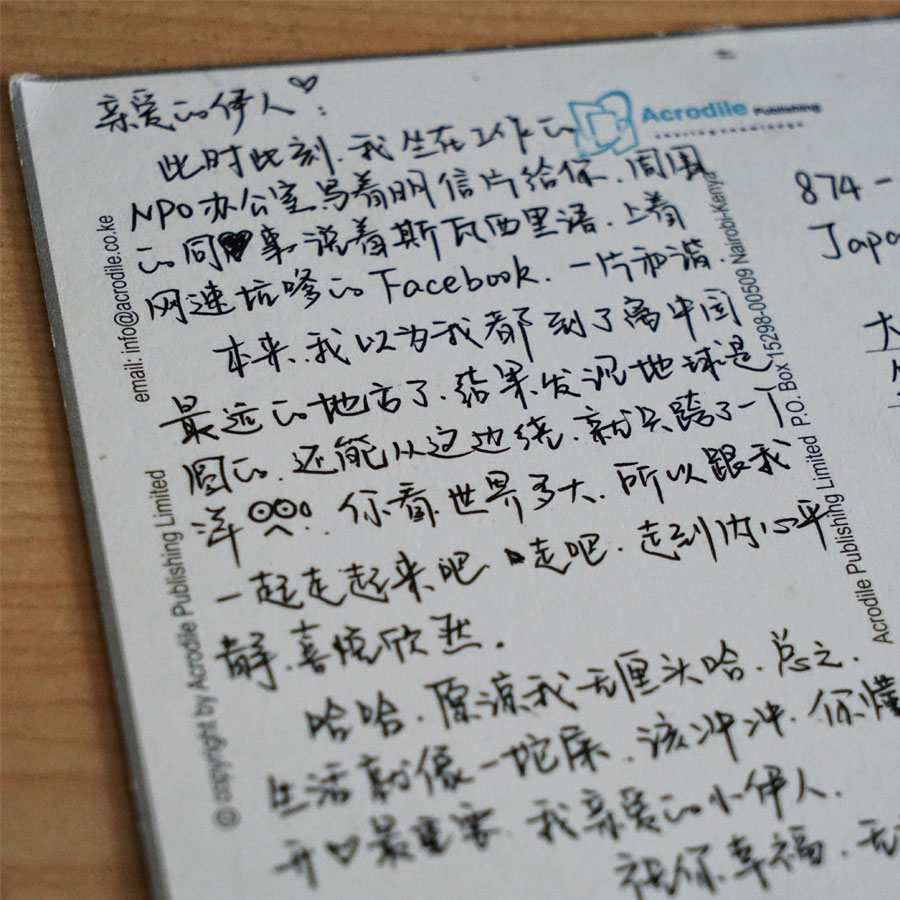 亲爱的伊人♡:
此时此刻.我坐在工作的
NPO办公室写着明信片给你.周围
的同事说着斯瓦西里语.上着
网速坑爹的Facebook.一片和谐.
本来.我以为我都到了离中国
最远的地方了.结果发现地球是
圆的.还能从这边绕.就只跨了一个
洋.你看世界多大.所以跟我
一起走起来吧.走吧.走到内心平
静.喜悦欣然.
哈哈.原谅我无厘头哈.总之.
生活就像一坨屎.该冲冲.你懂
开♡最重要.我亲爱的小伊人.
祝你幸福.无
Acrodile Publishing
sharing knowledge
874-
Japa
大
email: info@acrodile.co.ke
© copyright by Acrodile Publishing Limited
Acrodile Publishing Limited P.O. Box 15298-00509 Nairobi-Kenya